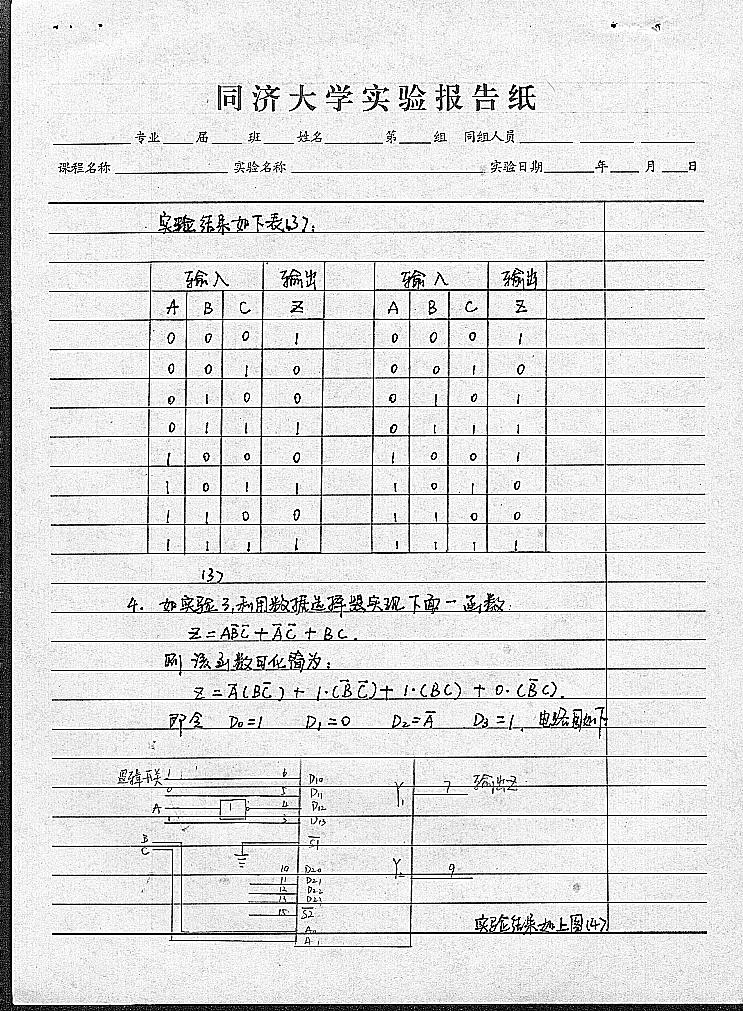 同济大学实验报告纸
专业 届 班 姓名 第 组 同组人员
课程名称 实验名称 实验日期 年 月 日
实验结果如下表(3):
输入 输出 输入 输出
A B C Z A B C Z
0 0 0 1 0 0 0 1
0 0 1 0 0 0 1 0
0 1 0 0 0 1 0 1
0 1 1 1 0 1 1 1
1 0 0 0 1 0 0 1
1 0 1 1 1 0 1 0
1 1 0 0 1 1 0 0
1 1 1 1 1 1 1 1
(3)
4. 如实验3,利用数据选择器实现下面一函数.
Z=AB̅C̅+A̅C̅+BC.
则该函数可化简为:
Z=A̅(BC̅)+1·(B̅C̅)+1·(BC)+0·(B̅C).
即令 D₀=1 D₁=0 D₂=A̅ D₃=1. 电路图如下:
逻辑开关 1 6 D10
0 5 D11 Y1 7 输出Z
A 1 4 D12
1 3 D13
B S̅1
C
10 D20 Y2 9
11 D21
12 D22
13 D23
15 S̅2
A0 实验结果如上图(4)
A1